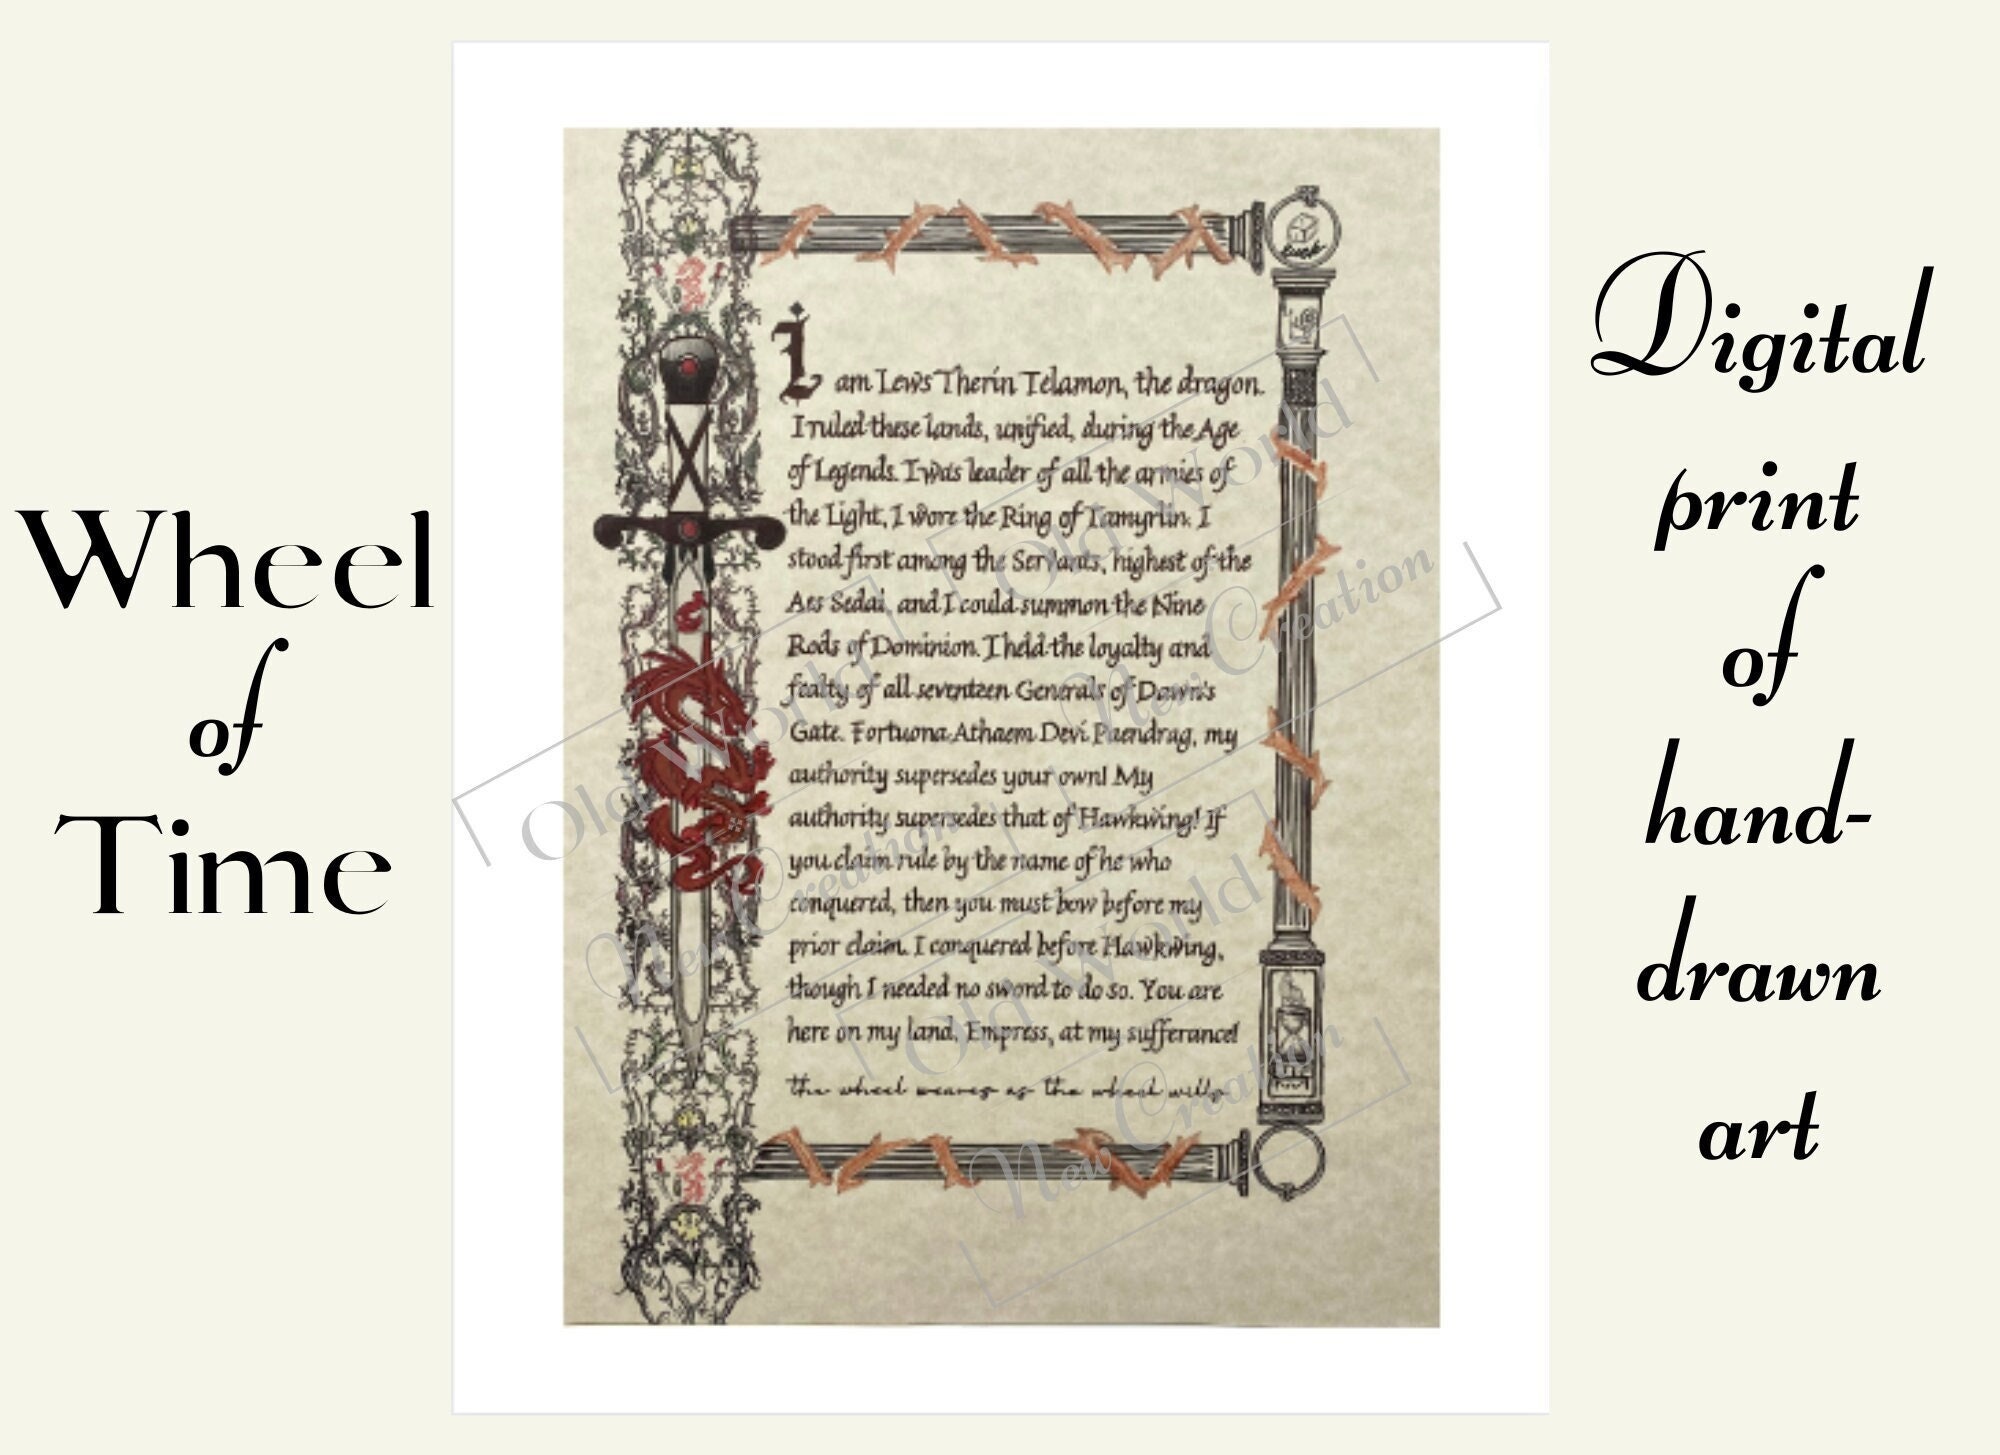 Wheel
of
Time
luck
I am Lews Therin Telamon, the dragon.
I ruled these lands, unified, during the Age
of Legends. I was leader of all the armies of
the Light, I wore the Ring of Tamyrlin. I
stood first among the Servants, highest of the
Aes Sedai, and I could summon the Nine
Rods of Dominion. I held the loyalty and
fealty of all seventeen Generals of Dawn's
Gate. Fortuona Athaem Devi Paendrag, my
authority supersedes your own! My
authority supersedes that of Hawkwing! If
you claim rule by the name of he who
conquered, then you must bow before my
prior claim. I conquered before Hawkwing,
though I needed no sword to do so. You are
here on my land, Empress, at my sufferance!
the wheel weaves as the wheel wills
Digital
print
of
hand-
drawn
art
Old World
New Creation
Old World
New Creation
Old World
New Creation